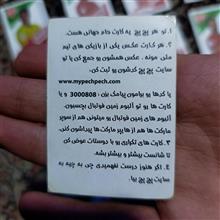 ۱. تو هر پچ پچ یه کارت جام جهانی هست.
۲. هر کارت عکس یکی از بازیکن های تیم
ملی مونه. عکس همشون رو جمع کن یا تو
سایت پچ پچ کدشون رو ثبت کن.
www.mypechpech.com
یا کدها رو برامون پیامک بزن: 3000808 یا
کارت ها رو تو آلبوم زمین فوتبال بچسبون.
آلبوم های زمین فوتبال رو میتونی هم از سوپر
مارکت ها هم از هایپر مارکت ها پیداشون کنی.
۳. کارت های تکراری رو با دوستات عوض کن
تا شانست بیشتر و بیشتر بشه.
۴. اگر هنوز درست نفهمیدی چی به چیه به
سایت پچ پچ بیا.